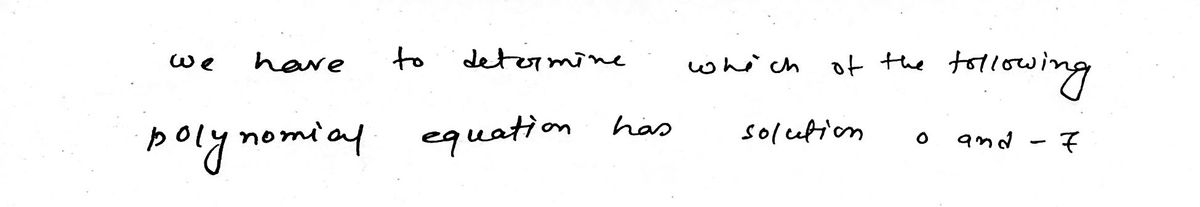 we have to determine which of the following
polynomial equation has solution 0 and - 7